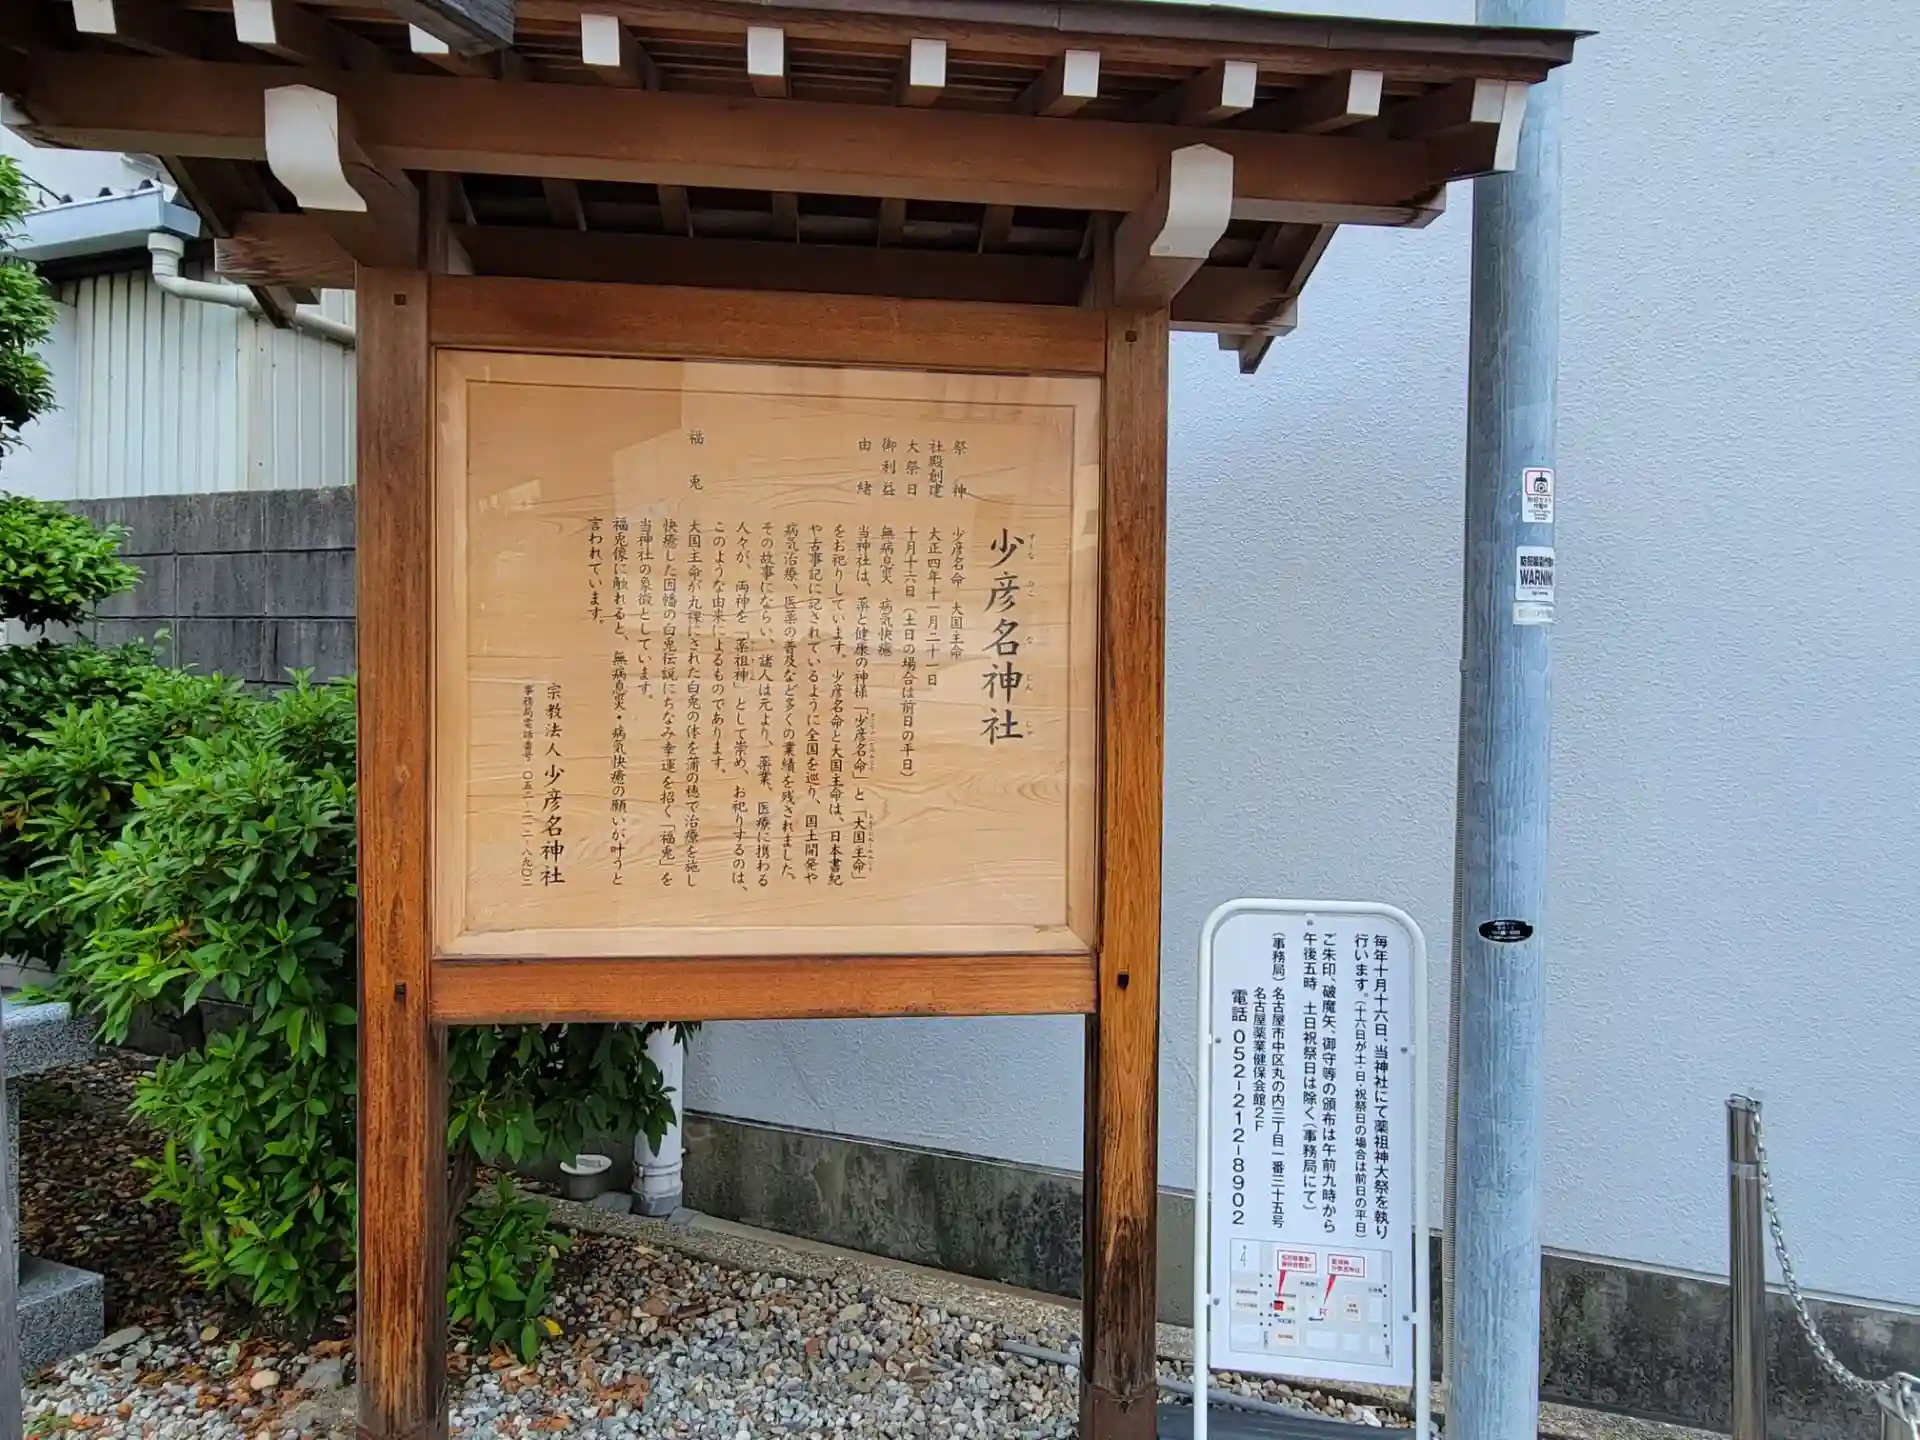 少彦名神社
すくなひこなじんじゃ
祭神 少彦名命 大国主命
社殿創建 大正四年十一月二十一日
大祭日 十月十六日(土日の場合は前日の平日)
御利益 無病息災 病気快癒
由緒 当神社は、薬と健康の神様「少彦名命」と「大国主命」
をお祀りしています。少彦名命と大国主命は、日本書紀
や古事記に記されているように全国を巡り、国土開発や
病気治療、医薬の普及など多くの業績を残されました。
その故事にならい、諸人は元より、薬業、医療に携わる
人々が、両神を「薬祖神」として崇め、お祀りするのは、
このような由来によるものであります。
福兎 大国主命が丸裸にされた白兎の体を蒲の穂で治療を施し
快癒した因幡の白兎伝説にちなみ幸運を招く「福兎」を
当神社の象徴としています。
福兎像に触れると、無病息災・病気快癒の願いが叶うと
言われています。
宗教法人 少彦名神社
事務局電話番号 〇五二−二一二−八九〇二
毎年十月十六日、当神社にて薬祖神大祭を執り
行います。(十六日が土・日・祝祭日の場合は前日の平日)
ご朱印、破魔矢、御守等の頒布は午前九時から
午後五時 土日祝祭日は除く(事務局にて)
(事務局)名古屋市中区丸の内三丁目一番三十五号
名古屋薬業健保会館2F
電話 052-212-8902
WARNING